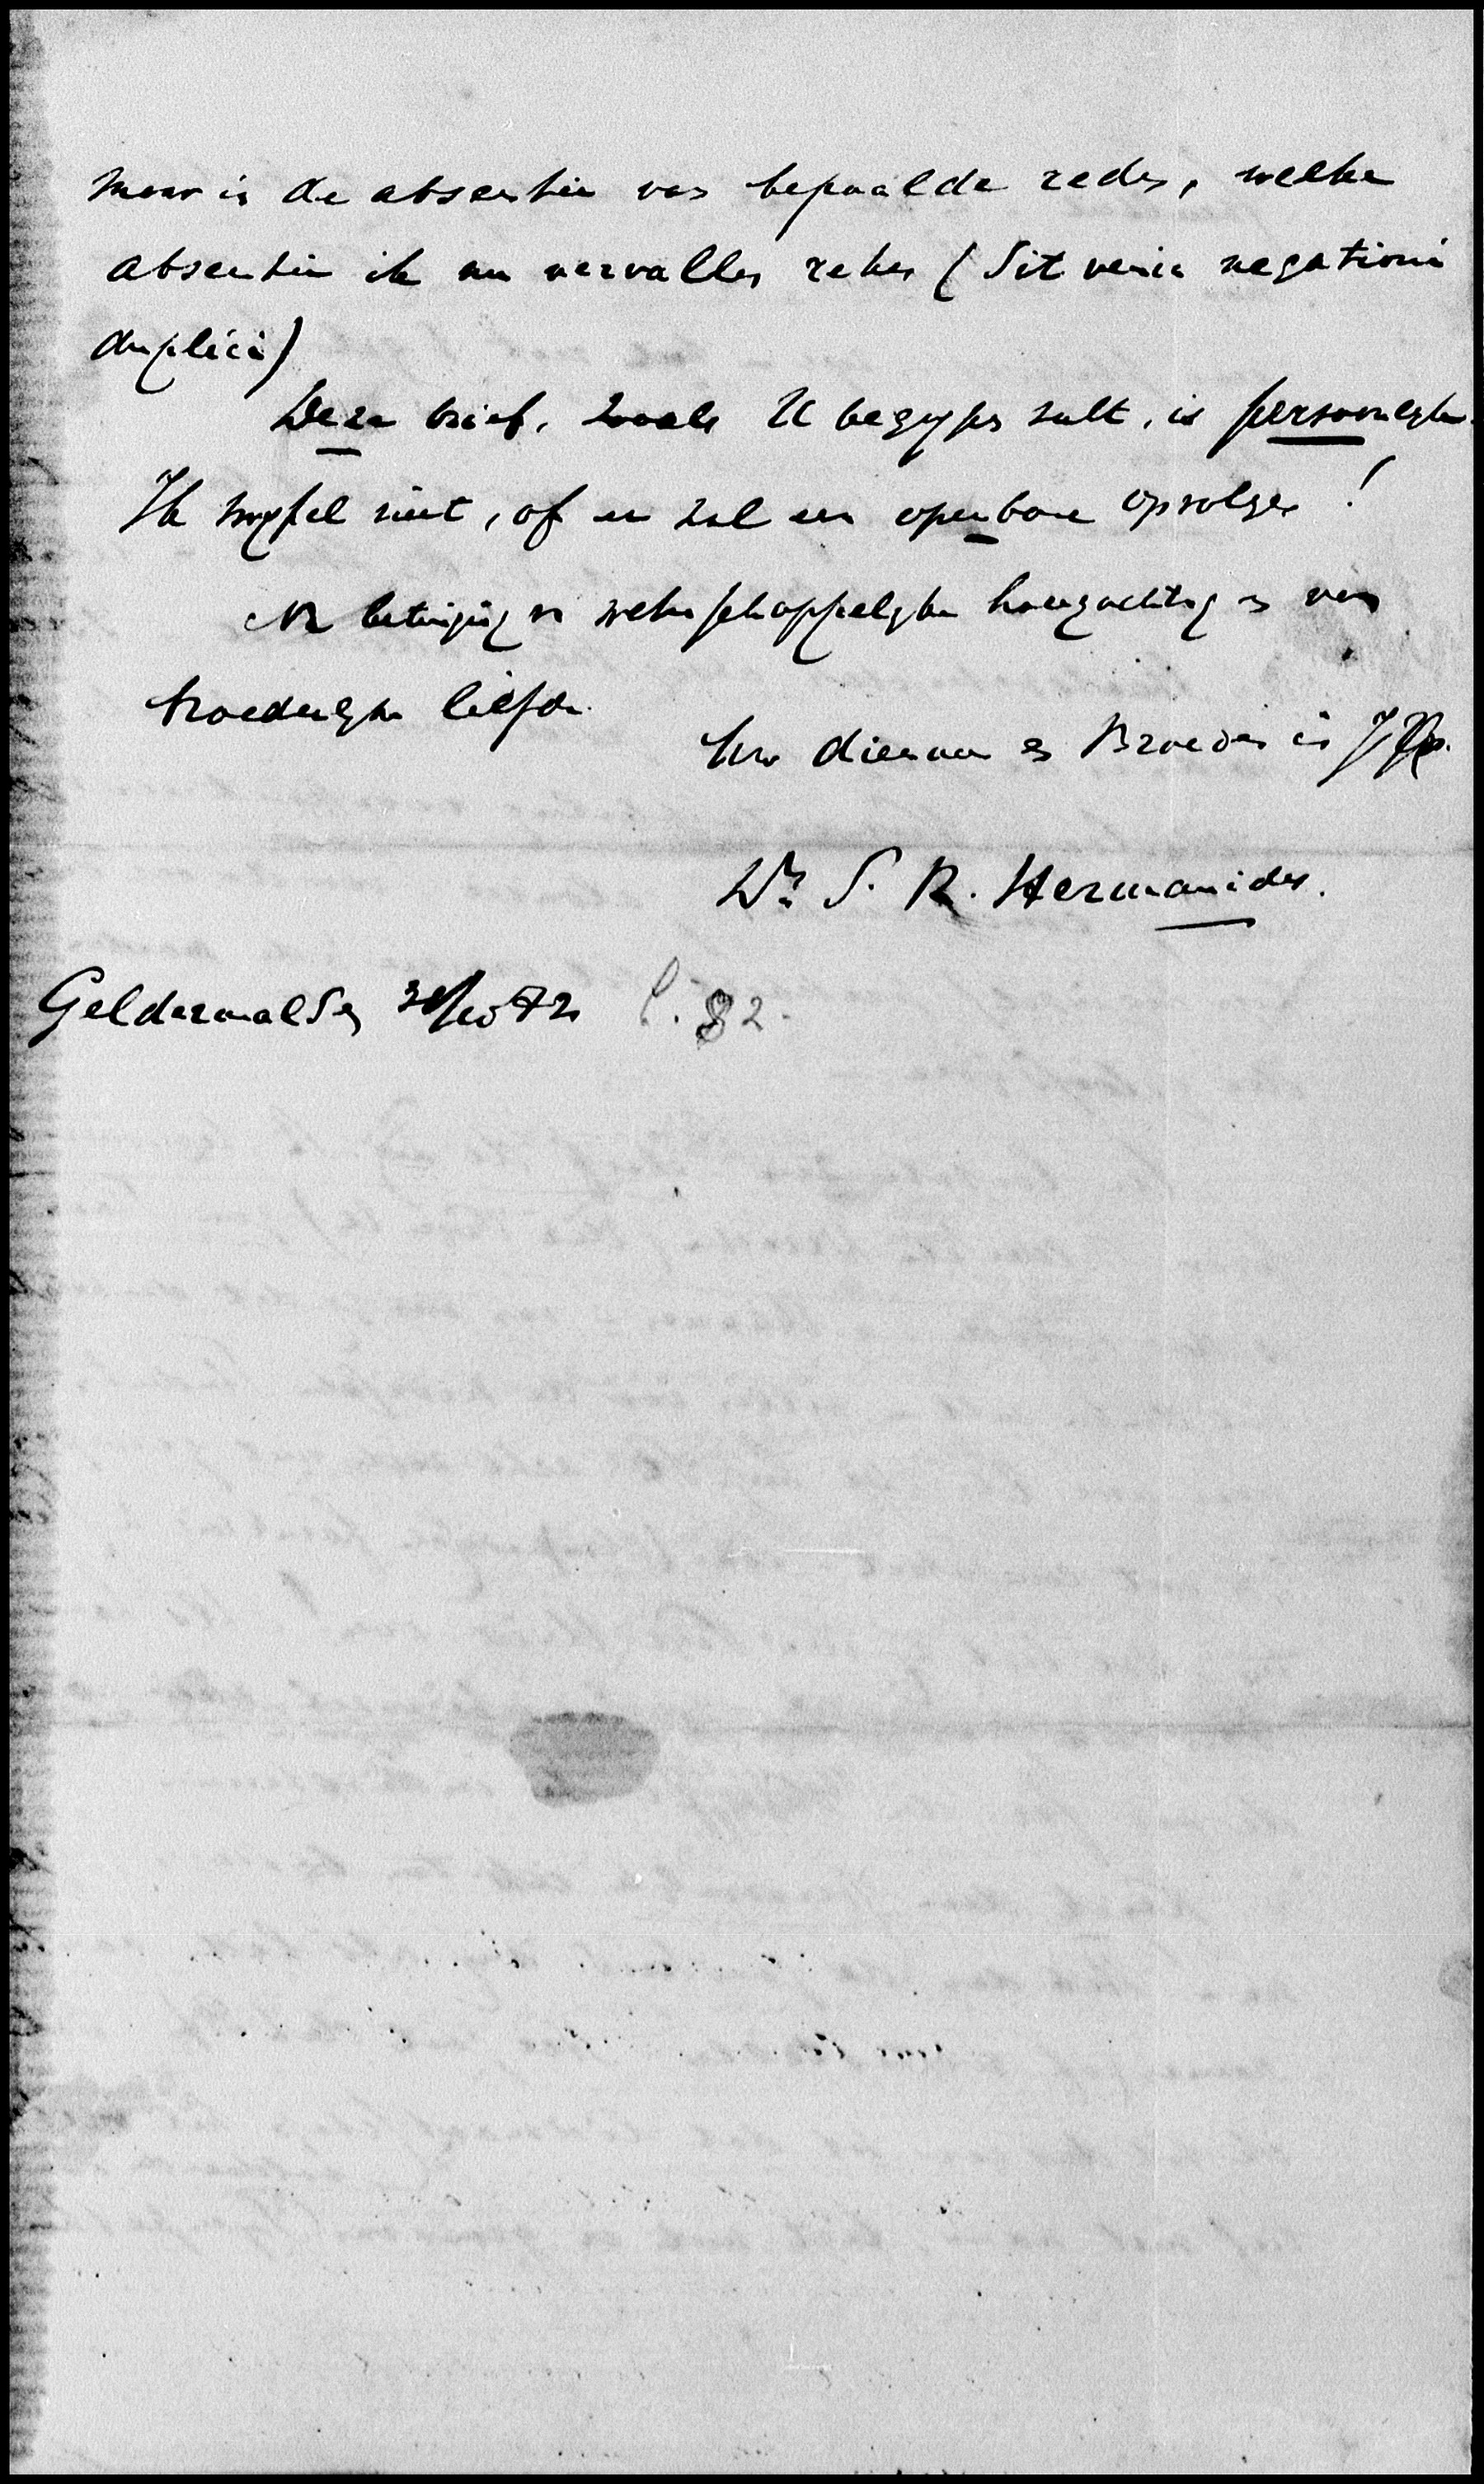 maar in de absentie van bepaalde reden, welke
absentie ik nu vervallen reken (Sit venia negationi
duplici)
Deze brief, zooals U begrypen zult, is persoonlyk.
Ik twyfel niet, of er zal een openbare opvolgen!
Na betuiging v. wetenschappelyke hoogachting en van
broederlyke liefde.
Uw dienaar en Broeder in
Dr. S. R. Hermanides.
Geldermalsen /10 72 82.